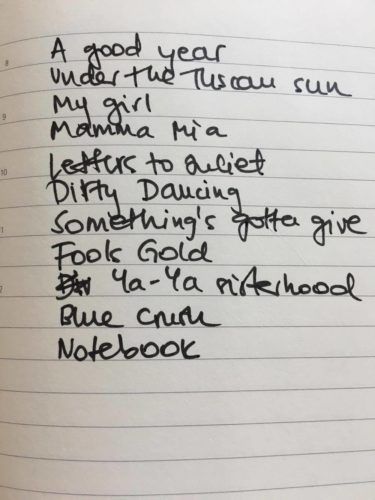 8
A good year
Under the Tuscan sun
9
My girl
Mamma Mia
10
Letters to Juliet
Dirty Dancing
1
Something's gotta give
Fools Gold
2
Ya-Ya sisterhood
Blue crush
Notebook